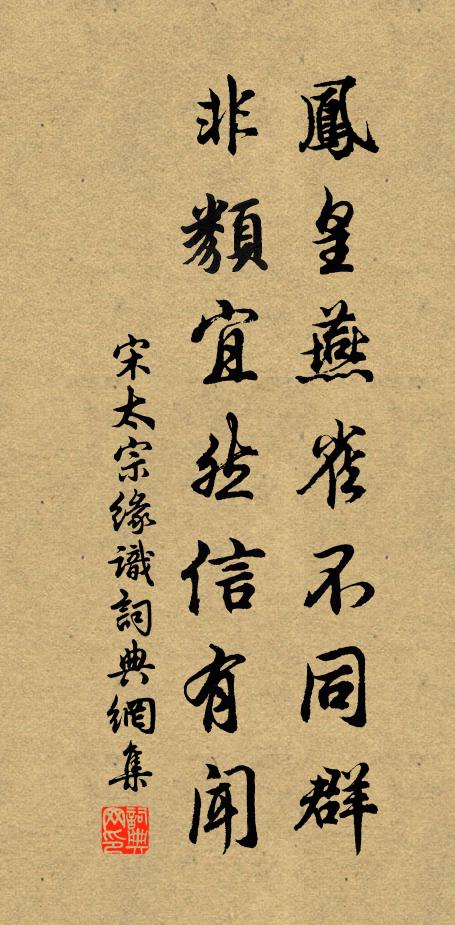 鳳皇燕雀不同群
非類宜然信有聞
宋太宗緣識詞典網集
詞典网印